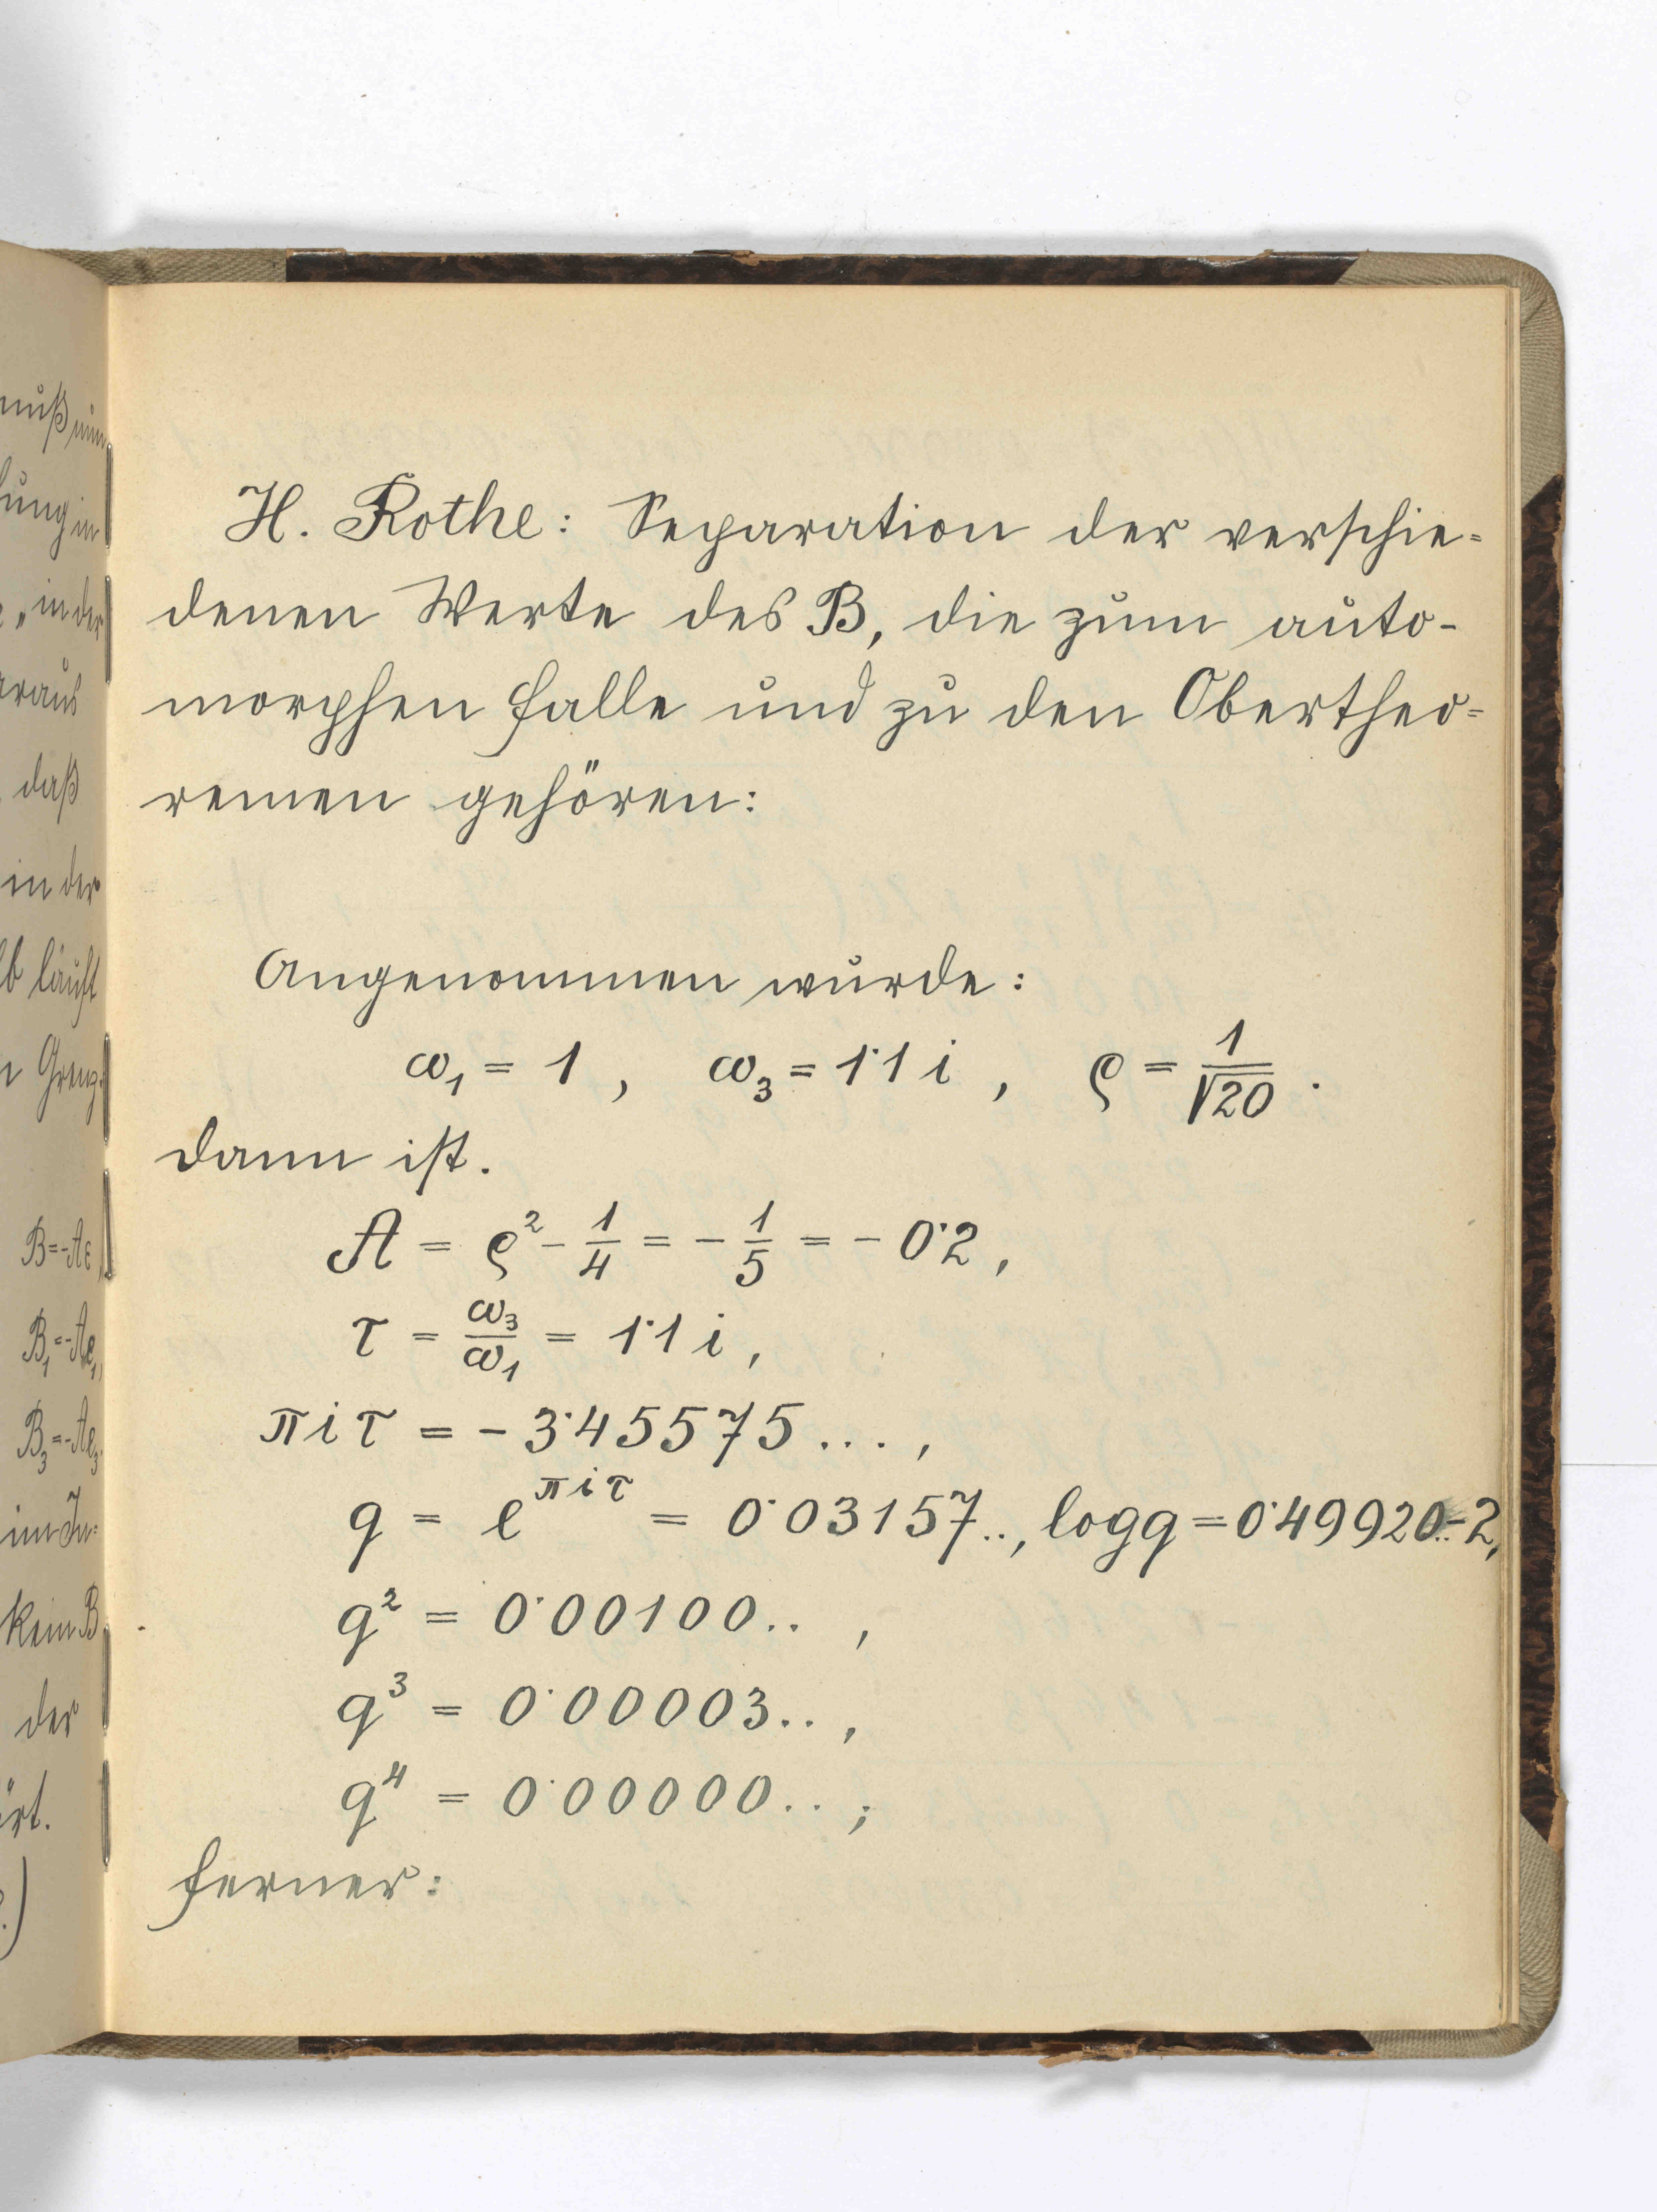 muß nun
in der
daß
in der
läuft
B=-Ae,
B₁=-Ae₁,
B₃=-Ae₃.
kein B
der
H. Rothe: Separation der verschie=
denen Werte des B, die zum auto-
morphen Falle und zu den Obertheo=
remen gehören:
Angenommen wurde:
ω₁ = 1 , ω₃ = 1·1 i , ϱ = 1/√20 .
Dann ist.
A = ϱ² - 1/4 = - 1/5 = - 0·2 ,
τ = ω₃/ω₁ = 1·1 i ,
π i τ = - 3·45575 ... ,
q = e^{π i τ} = 0·03157.., log q = 0·49920..-2,
q² = 0·00100.. ,
q³ = 0·00003.. ,
q⁴ = 0·00000.. ;
ferner: